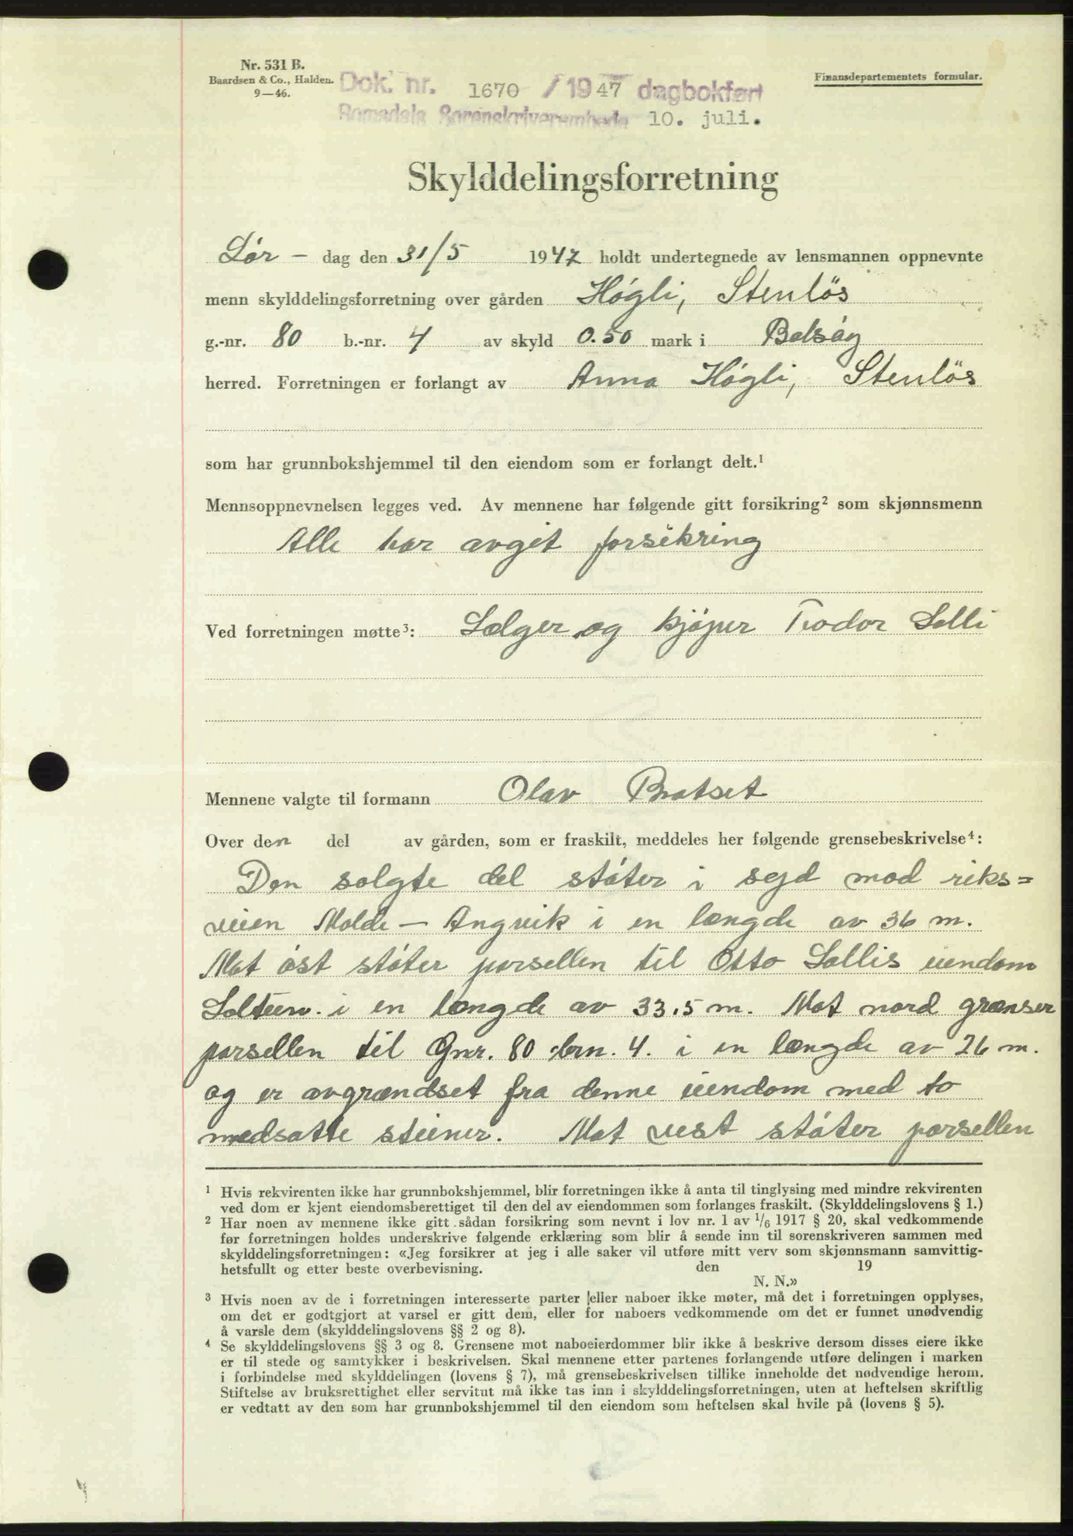 Nr. 531 B.
Baardsen & Co., Halden.
9—46.
Finansdepartementets formular.
Dok. nr. 1670 / 1947 dagbokført
Romsdals Sorenskriverembede 10. juli.
Skylddelingsforretning
Lör – dag den 31/5 1947 holdt undertegnede av lensmannen oppnevnte
menn skylddelingsforretning over gården Høgli, Stenlös
g.-nr. 80 b.-nr. 4 av skyld 0.50 mark i Bolsøy
herred. Forretningen er forlangt av Anna Høgli, Stenlös
som har grunnbokshjemmel til den eiendom som er forlangt delt.¹
Mennsoppnevnelsen legges ved. Av mennene har følgende gitt forsikring² som skjønnsmenn
Alle har avgit forsikring
Ved forretningen møtte³: Sælger og kjøper Teodor Solli
Mennene valgte til formann Olav Bratset
Over den del av gården, som er fraskilt, meddeles her følgende grensebeskrivelse⁴:
Den solgte del støter i syd mod riks=
veien Molde – Angvik i en længde av 36 m.
Mot øst støter parsellen til Otto Sollis eiendom
i en længde av 33,5 m. Mot nord grænser
parsellen til Gnr. 80 brn. 4. i en længde av 26 m.
og er avgrændset fra denne eiendom med to
nedsatte steiner. Mot vest støter parsellen
¹ Hvis rekvirenten ikke har grunnbokshjemmel, blir forretningen ikke å anta til tinglysing med mindre rekvirenten
ved dom er kjent eiendomsberettiget til den del av eiendommen som forlanges fraskilt. (Skylddelingslovens § 1.)
² Har noen av mennene ikke gitt sådan forsikring som nevnt i lov nr. 1 av 1/6 1917 § 20, skal vedkommende
før forretningen holdes underskrive følgende erklæring som blir å sende inn til sorenskriveren sammen med
skylddelingsforretningen: «Jeg forsikrer at jeg i alle saker vil utføre mitt verv som skjønnsmann samvittig-
hetsfullt og etter beste overbevisning. den 19
N. N.»
³ Hvis noen av de i forretningen interesserte parter eller naboer ikke møter, må det i forretningen opplyses,
om det er godtgjort at varsel er gitt dem, eller for naboers vedkommende om det er funnet unødvendig
å varsle dem (skylddelingslovens §§ 2 og 8).
⁴ Se skylddelingslovens §§ 3 og 8. Grensene mot naboeierdommer blir ikke å beskrive dersom disses eiere ikke
er til stede og samtykker i beskrivelsen. Skal mennene etter partenes forlangende utføre delingen i marken
i forbindelse med skylddelingen (lovens § 7), må grensebeskrivelsen tillike inneholde det nødvendige herom.
Stiftelse av bruksrettighet eller servitut må ikke tas inn i skylddelingsforretningen, uten at heftelsen skriftlig
er vedtatt av den som har grunnbokshjemmel til den eiendom som heftelsen skal hvile på (lovens § 5).